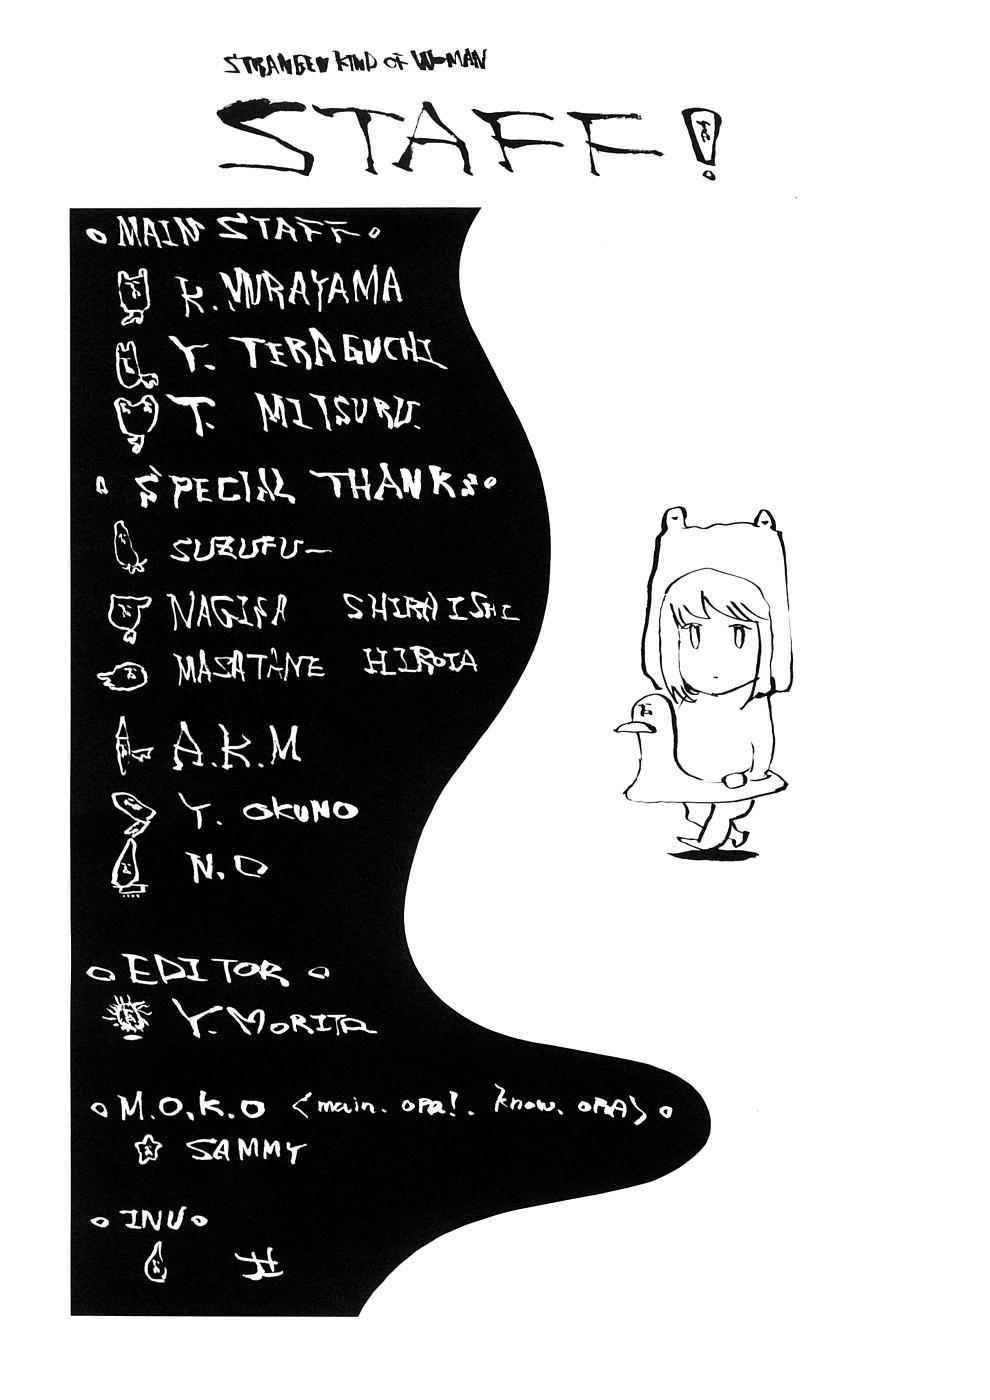 STRANGER KIND OF WOMAN
STAFF!
MAIN STAFF
K. MURAYAMA
Y. TERAGUCHI
T. MITSURU.
SPECIAL THANKS
SUZUFU—
NAGISA SHIRAISHI
MASATANE HIROTA
A.K.M
Y. OKUNO
N.O
EDITOR
Y. MORITA
M.O.K.O <main. OPA!. know. OPA>
SAMMY
INU